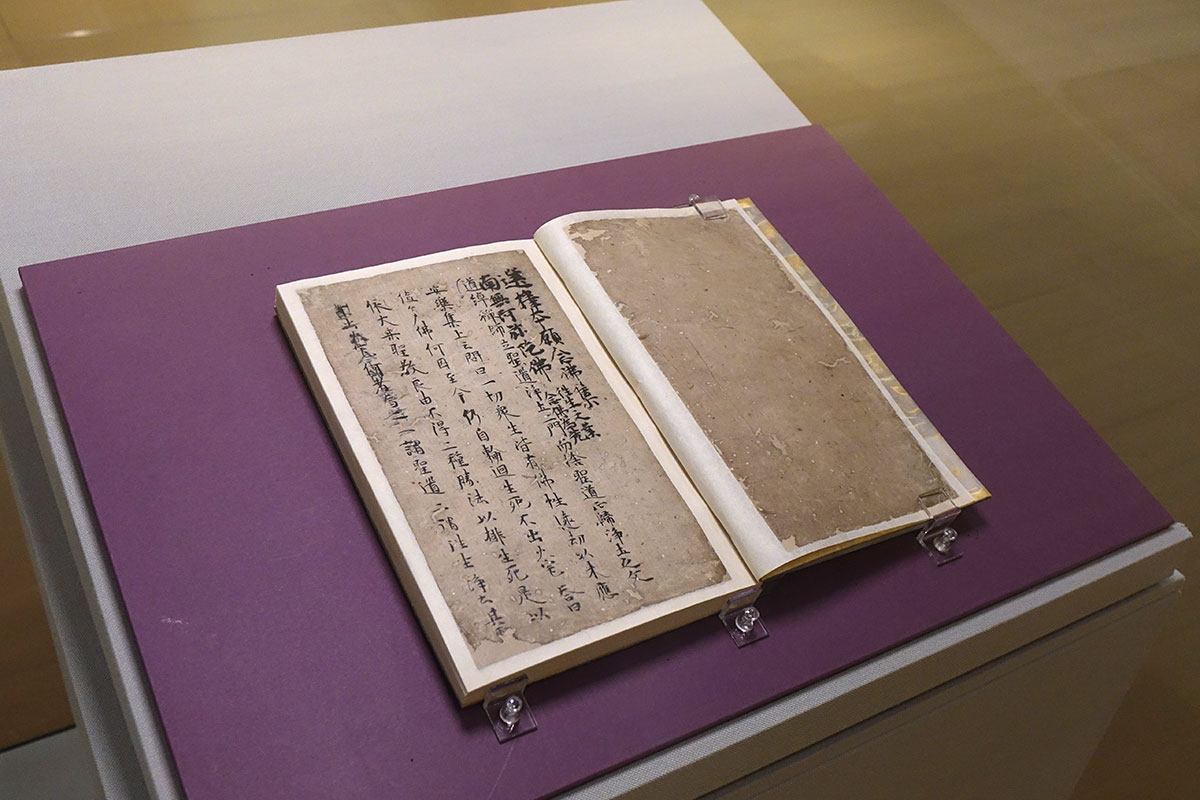 選擇本願念佛集
南無阿弥陀佛 往生之業
念佛為先
道綽禅師立聖道浄土二門而捨聖道正歸浄土之文
安樂集上云問曰一切衆生皆有佛性遠劫以来應
值多佛何因至今仍自輪迴生死不出火宅答曰
依大乗聖教良由不得二種勝法以排生死是以
何者為二一謂聖道二謂往生浄土其